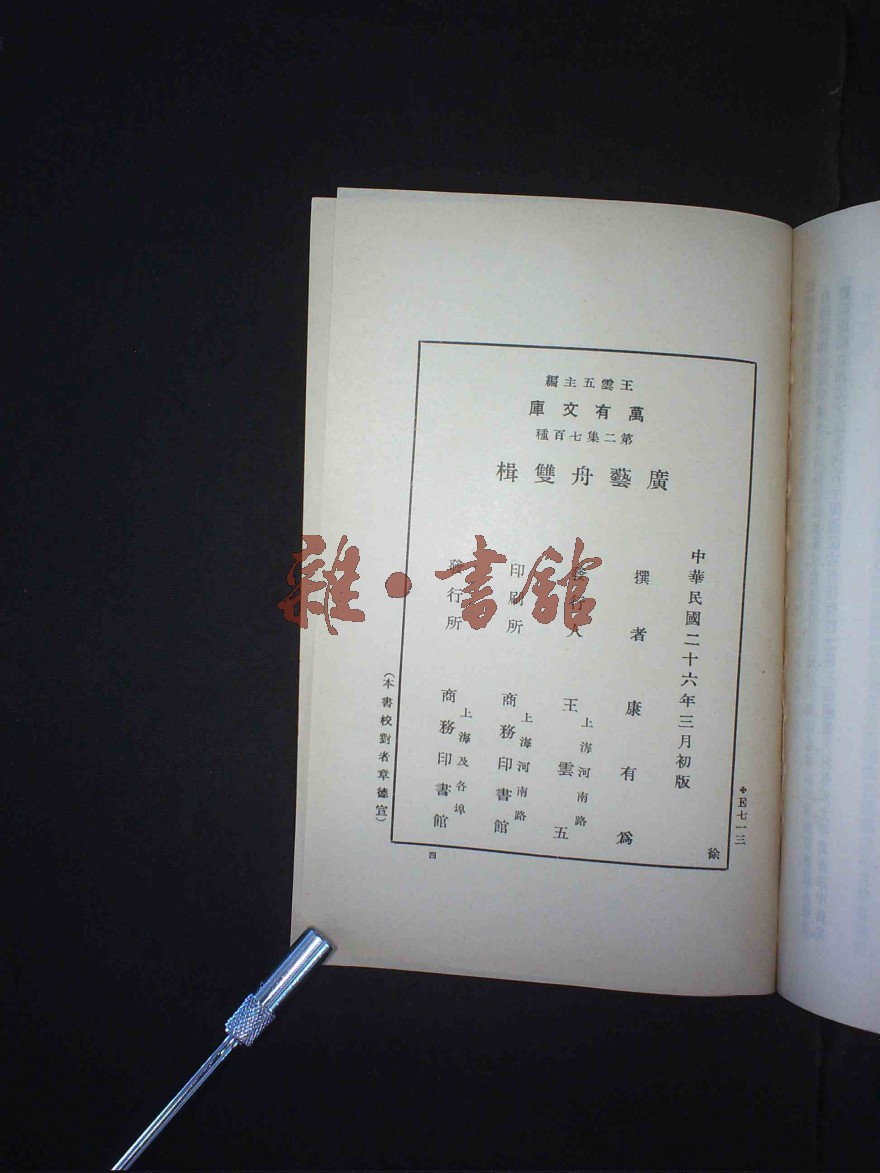 王雲五主編
萬有文庫
第二集七百種
廣藝舟雙楫
中華民國二十六年三月初版
撰者 康有爲
發行人 王雲五
上海河南路
印刷所 商務印書館
上海河南路
發行所 商務印書館
上海及各埠
(本書校對者章德宣)
✣E七一三
徐
四
雜·書館